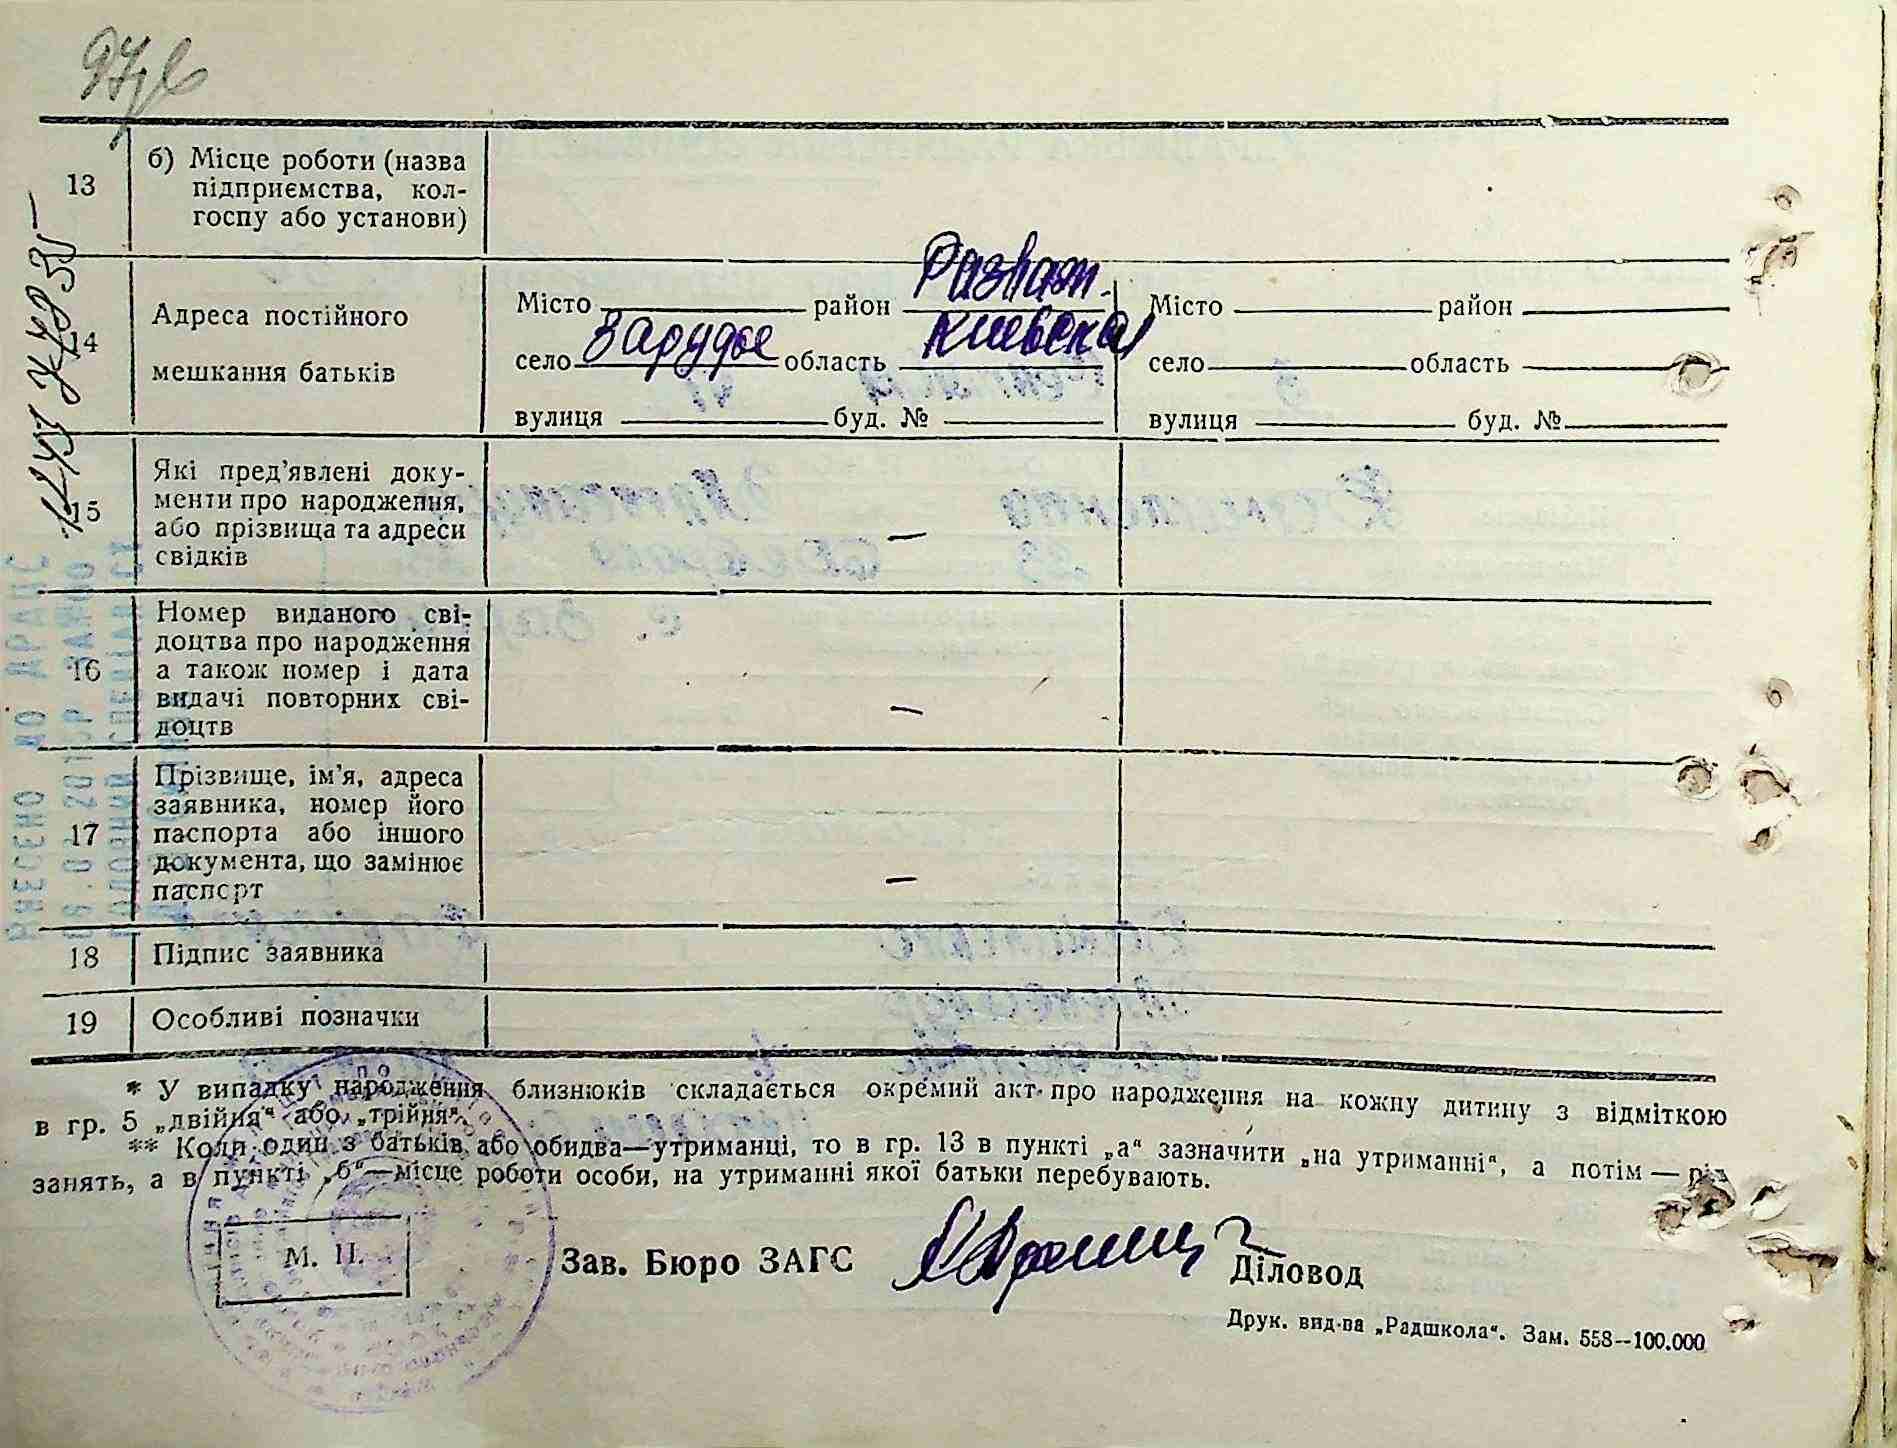 13
б) Місце роботи (назва
підприємства, кол-
госпу або установи)
14
Адреса постійного
мешкання батьків
Місто район Розваж.
село Зарудье область Киевская
вулиця буд. №
Місто район
село область
вулиця буд. №
15
Які пред’явлені доку-
менти про народження,
або прізвища та адреси
свідків
—
16
Номер виданого сві-
доцтва про народження
а також номер і дата
видачі повторних сві-
доцтв
—
17
Прізвище, ім’я, адреса
заявника, номер його
паспорта або іншого
документа, що замінює
паспорт
—
18
Підпис заявника
19
Особливі позначки
* У випадку народження близнюків складається окремий акт про народження на кожну дитину з відміткою
в гр. 5 „двійня“ або „трійня“.
** Коли один з батьків або обидва—утриманці, то в гр. 13 в пункті „а“ зазначити „на утриманні“, а потім — рід
занять, а в пункті „б“—місце роботи особи, на утриманні якої батьки перебувають.
М. П.
Зав. Бюро ЗАГС
Діловод
Друк. вид-ва „Радшкола“. Зам. 558—100.000